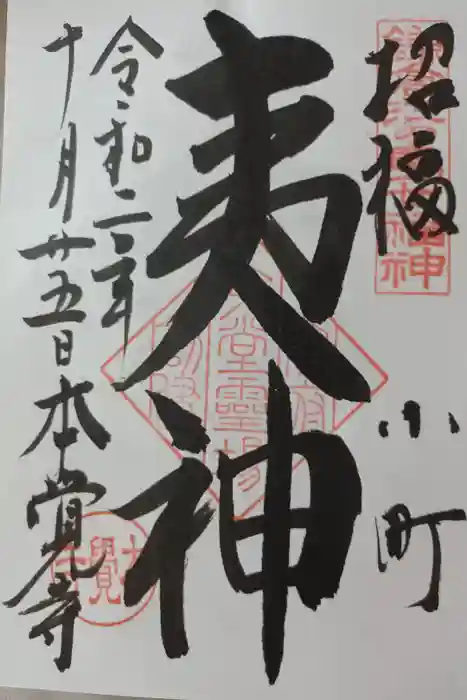 招福
小町
夷神
令和二年
十月廿五日本覺寺